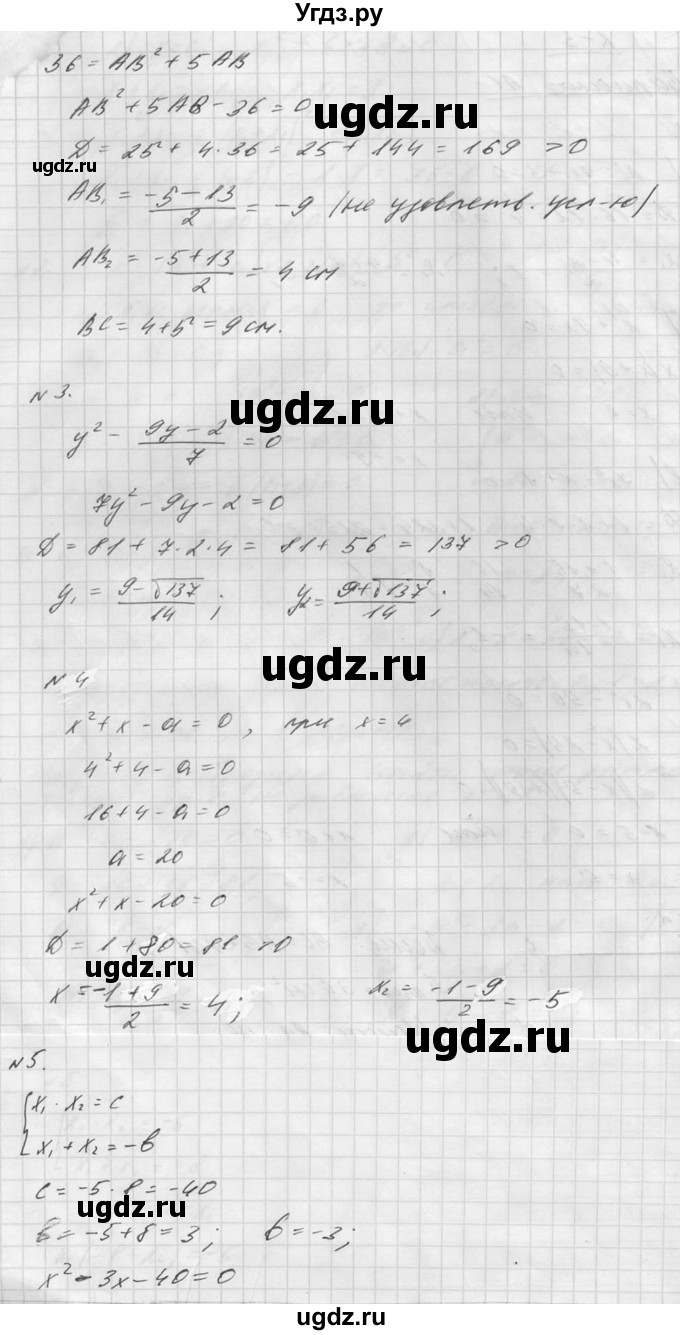 Угдз.ру
36 = AB² + 5AB
AB² + 5AB - 36 = 0
ugdz.ru
D = 25 + 4·36 = 25 + 144 = 169 > 0
ugdz.ru
AB₁ = (-5-13)/2 = -9 (не удовлетв. усл-ю)
AB₂ = (-5+13)/2 = 4 см
BC = 4+5 = 9 см.
ugdz.ru
№3.
y² - (9y-2)/7 = 0
7y² - 9y - 2 = 0
D = 81 + 7·2·4 = 81 + 56 = 137 > 0
y₁ = (9-√137)/14 ; y₂ = (9+√137)/14 ;
ugdz.ru
№4
x² + x - a = 0, при x = 4
4² + 4 - a = 0
16 + 4 - a = 0
ugdz.ru
a = 20
x² + x - 20 = 0
D = 1 + 80 = 81 > 0
ugdz.ru
x = (-1+9)/2 = 4; x₂ = (-1-9)/2 = -5
ugdz.ru
№5.
x₁ · x₂ = c
x₁ + x₂ = -b
c = -5·8 = -40
ugdz.ru
b = -5+8 = 3; b = -3;
x² - 3x - 40 = 0
ugdz.ru
ugdz.ru